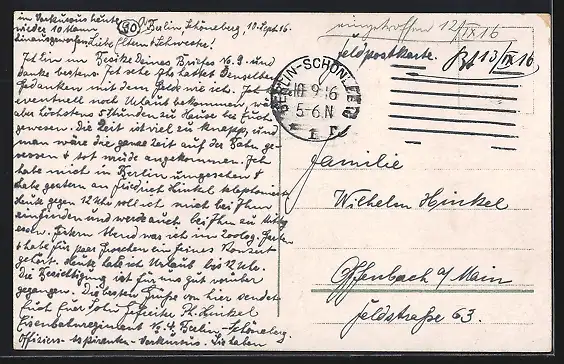 im Vorkursus heute
wieder 10 Mann
hinausgeworfen
90.
Berlin, Schöneberg, 10. Sept. 16.
Liebe Eltern & Schwester!
Ich bin im Besitze Deines Briefes No. 9 und
danke bestens. Ich sehe Ihr hattet denselben
Gedanken mit dem Feld wie ich. Ich
eventuell noch Urlaub bekommen,
aber höchstens 5 Stunden zu Hause bei Euch
gewesen. Die Zeit ist viel zu knapp, und
man wäre die ganze Zeit auf der Bahn ge-
sessen & tot müde angekommen. Ich
habe mich in Berlin umgesehen &
habe gestern an Friedrich Hinkel telephoniert
Heute gegen 12 Uhr soll ich mich bei Ihm
einfinden und werde auch bei Ihm zu Mittag
essen. Gestern Abend war ich im Zoolog. Garten
& habe für paar Groschen ein feines Konzert
gehört. Heute habe ich Urlaub bis 12 Uhr.
Die Besichtigung ist für uns gut weiter
gegangen. Die besten Grüße von hier sendet
Euch Euer Sohn Gefreiter Ph. Hinkel
Eisenbahnregiment No. 4, Berlin-Schöneberg
Offiziers-Aspiranten-Vorkursus.
eingetroffen 12/IX 16
Feldpostkarte.
13/IX 16
BERLIN-SCHÖNEBERG
10.9.16
5-6 N
Familie
Wilhelm Hinkel
Offenbach a/Main
Feldstraße 63.